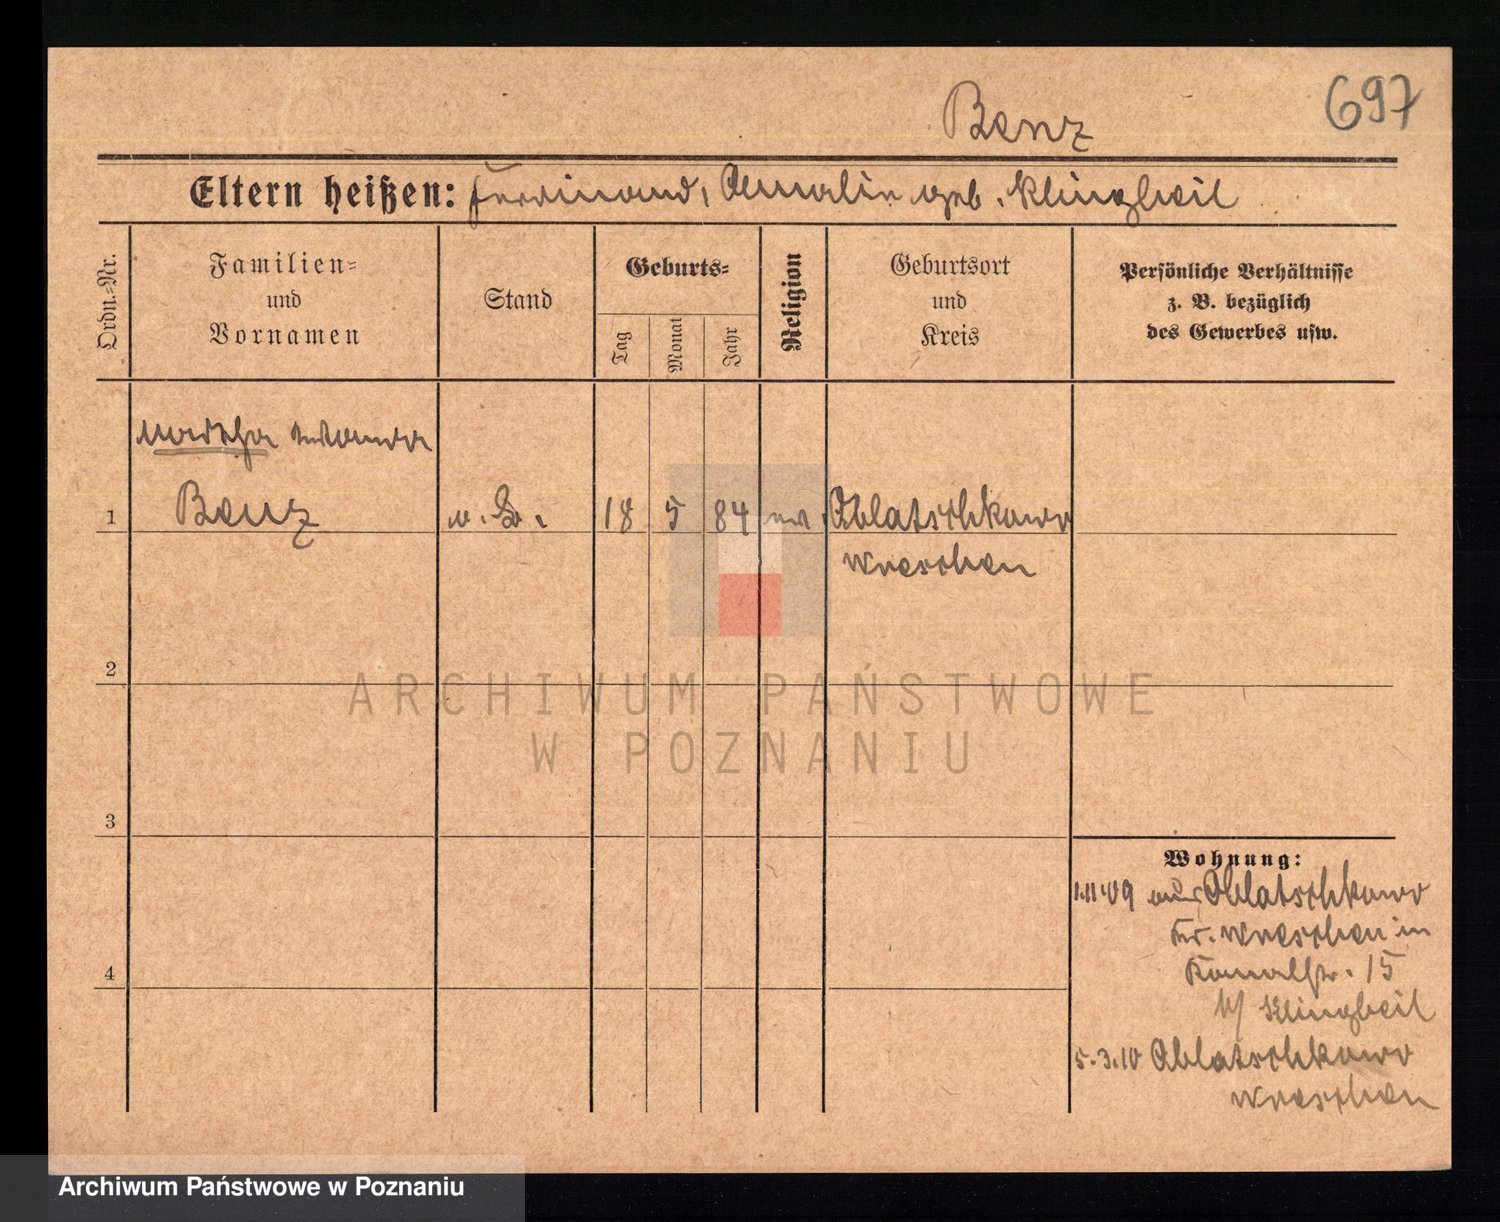 Benz
697
Eltern heißen: Ferdinand, Amalie geb. Klingbeil
Ordn.-Nr.
Familien-
und
Vornamen
Stand
Geburts-
Tag
Monat
Jahr
Religion
Geburtsort
und
Kreis
Persönliche Verhältnisse
z. B. bezüglich
des Gewerbes usw.
Martha Wanda
1 Benz 18 5 84 ev. Oblatschkowo
Wreschen
2
3
4
Wohnung:
1.11.09 aus Oblatschkowo
Kr. Wreschen in
Kanalstr. 15
b/ Klingbeil
5.3.10 Oblatschkowo
Wreschen
ARCHIWUM PAŃSTWOWE
W POZNANIU
Archiwum Państwowe w Poznaniu